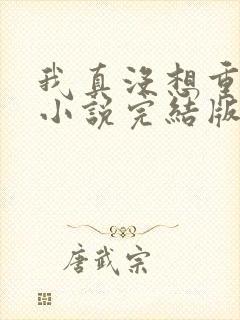 我真没想重
小說完結版
唐武宗